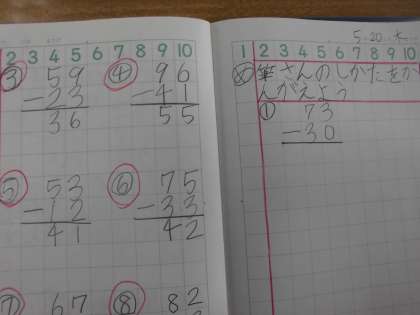 2 3 4 5 6 7 8 9 10
③ 59
-23
36
④ 96
-41
55
⑤ 53
-12
41
⑥ 75
-33
42
⑦ 67
⑧ 82
5.20
1 2 3 4 5 6 7 8 9 10
筆さんのしかたをか
んがえよう
① 73
-30